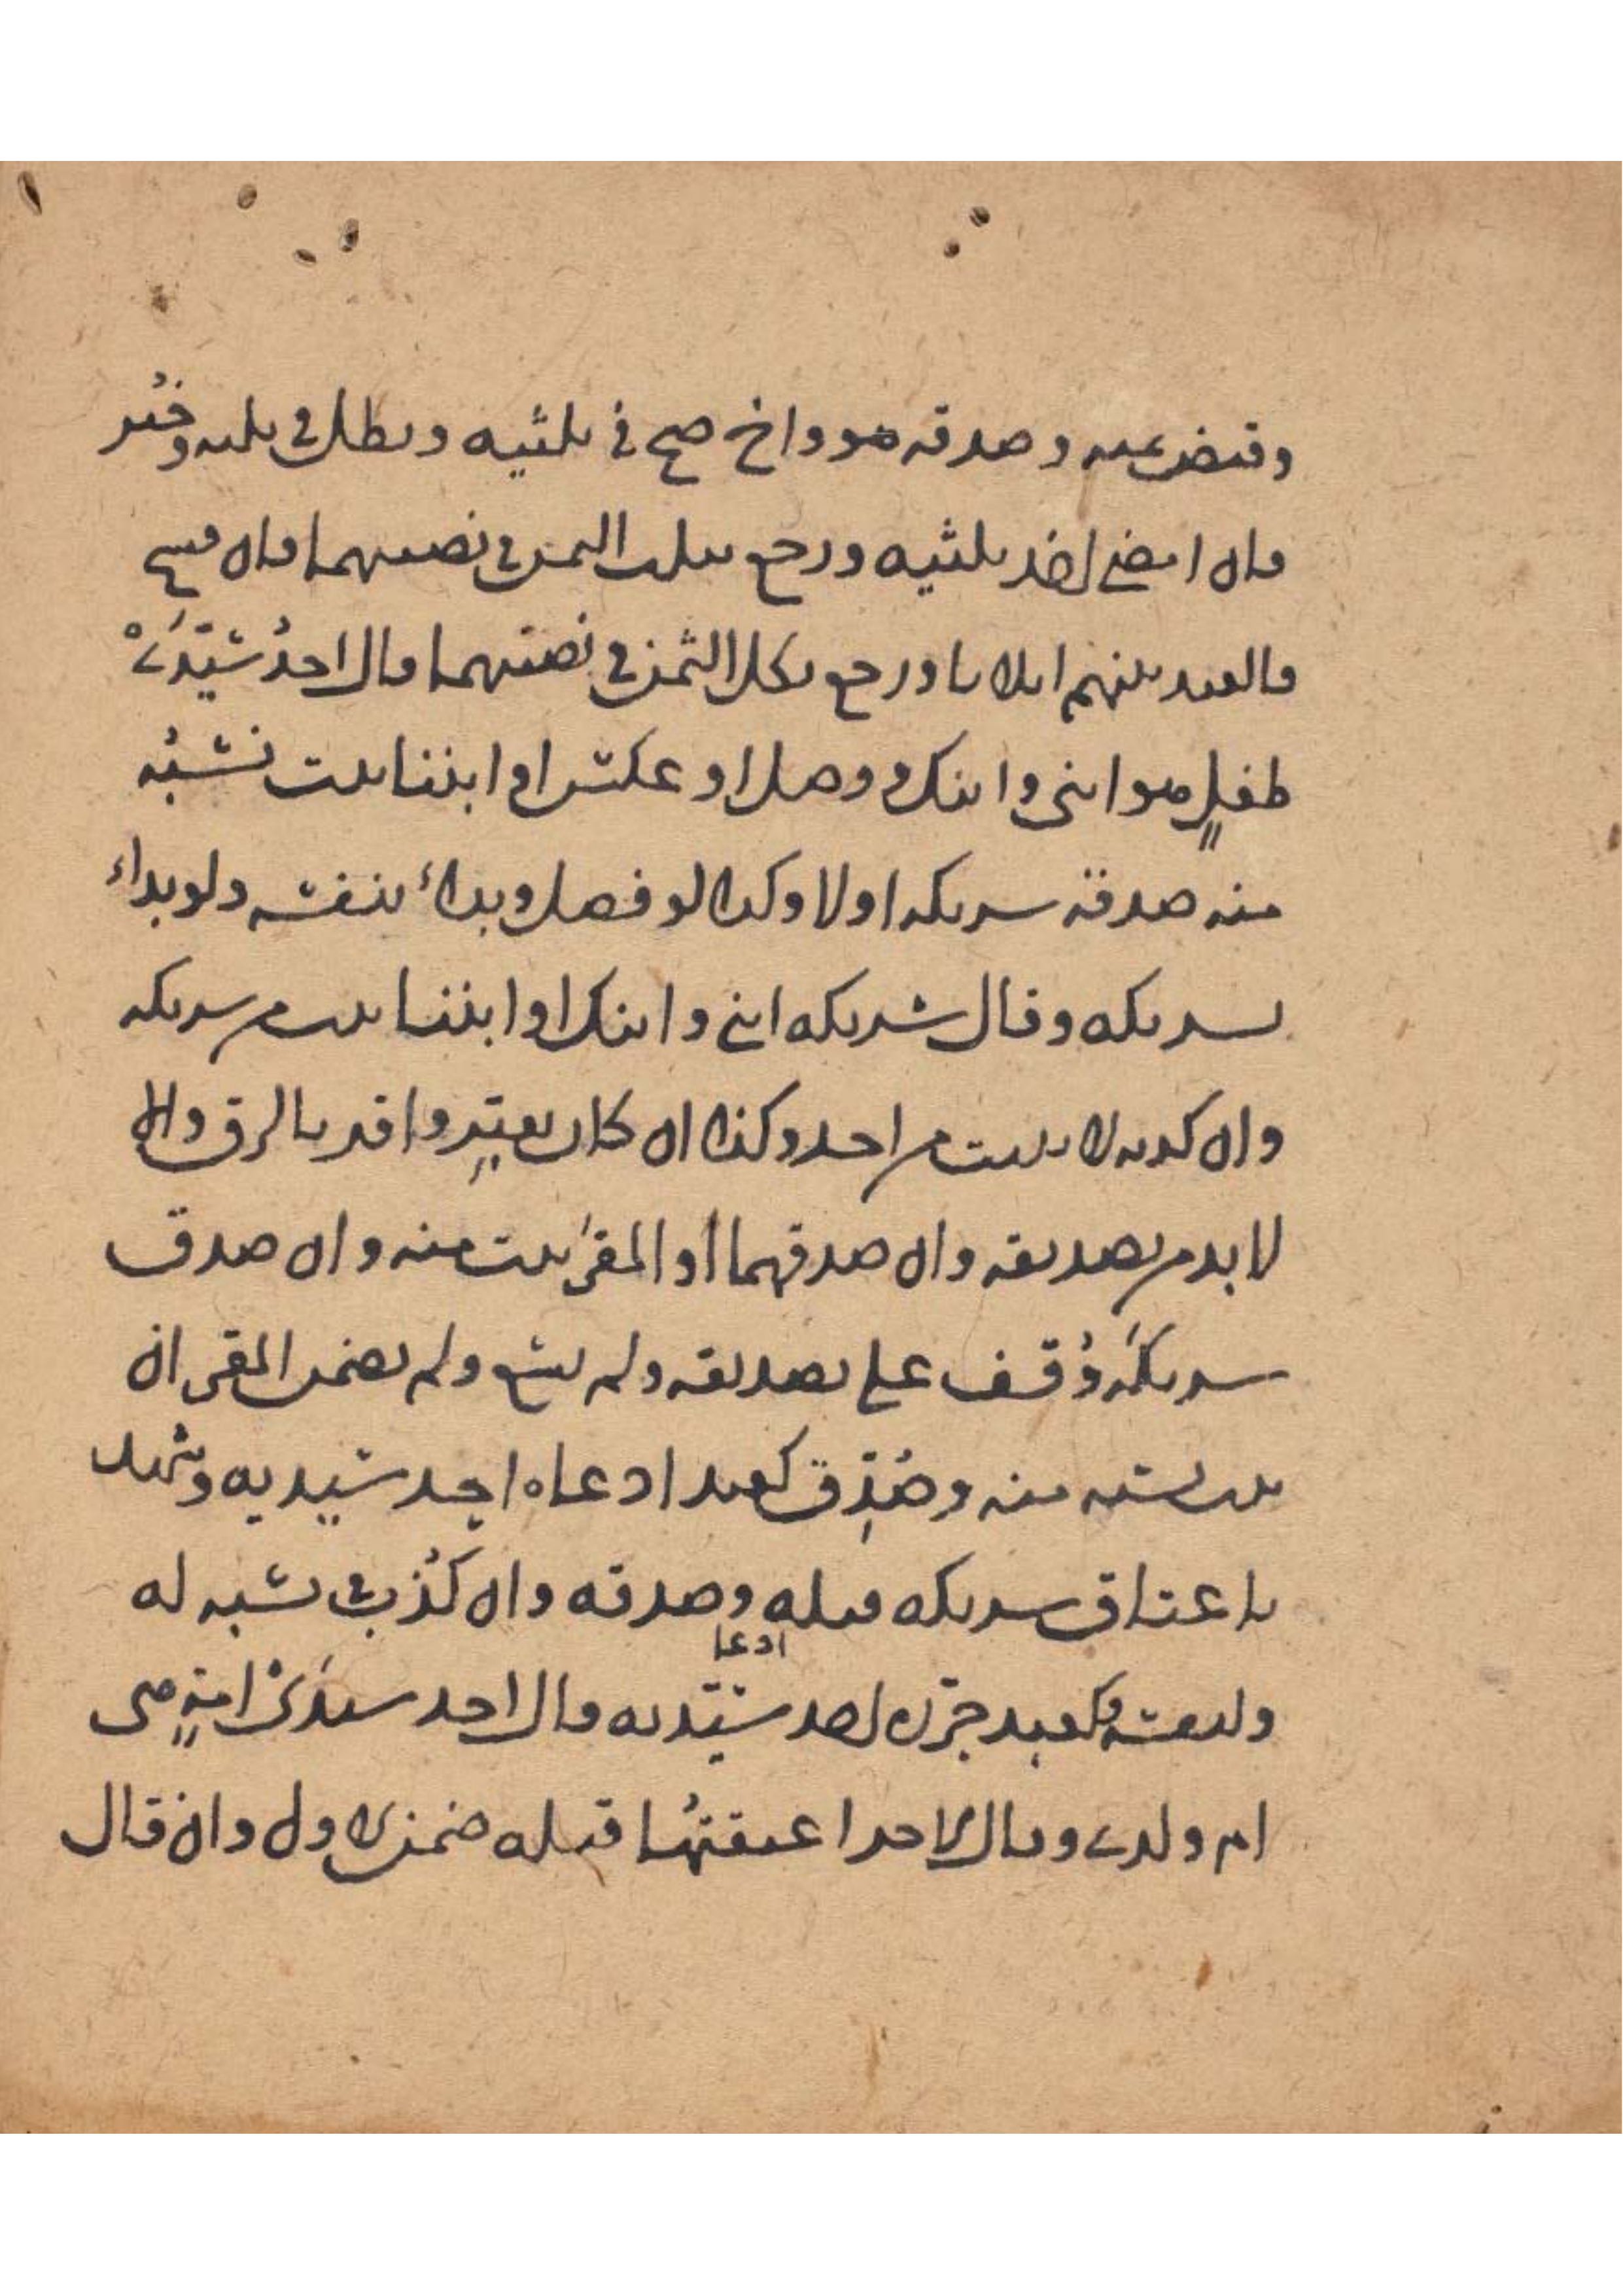 وقبض ثمنه وصدقه هو واخ صح في ثلثيه وبطل في ثلثه وخير
فان امضى اخذ ثلثيه ورجع بثلث الثمن في نصيبهما وان فسخ
فالعبد بينهم اثلاثا ورجع بكل الثمن في نصيبهما قال احدُ سَيِّدَيْ
طفلٍ هو ابني وابنك ووصل او عكس او ابننا ثبت نسبُه
منه صدقه شريكه او لا وكذا لو فصل وبداء بنفسه ولو بداء
بشريكه وقال شريكه ابني وابنك او ابننا ثبت من شريكه
وان كذبه لا يثبت من احد وكذا ان كان يعبِّر واقر بالرق والا
لا بد من تصديقه وان صدقهما او المقر ثبت منه وان صدق
شريكه وُقف على تصديقه ولم يسع ولم يضمن المقر ان
ثبت نسبه منه وصُدِّق كعبد ادعاه احد سيديه وشهد
باعتاق شريكه قبله وصدقه وان كذب في نسبه له
ولد عتقه كعبد حرره احد سيديه قال احد سيدَيْ امةٍ هي
ادعا
ام ولدي وقال الاخر اعتقتُها قبله ضمن الاول وان قال